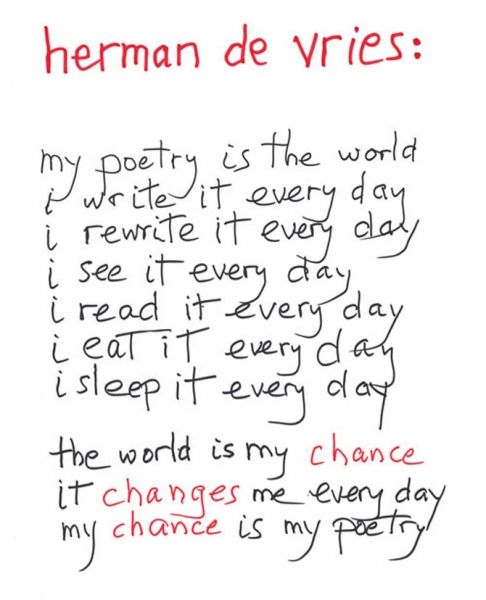 herman de vries:
my poetry is the world
i write it every day
i rewrite it every day
i see it every day
i read it every day
i eat it every day
i sleep it every day
the world is my chance
it changes me every day
my chance is my poetry